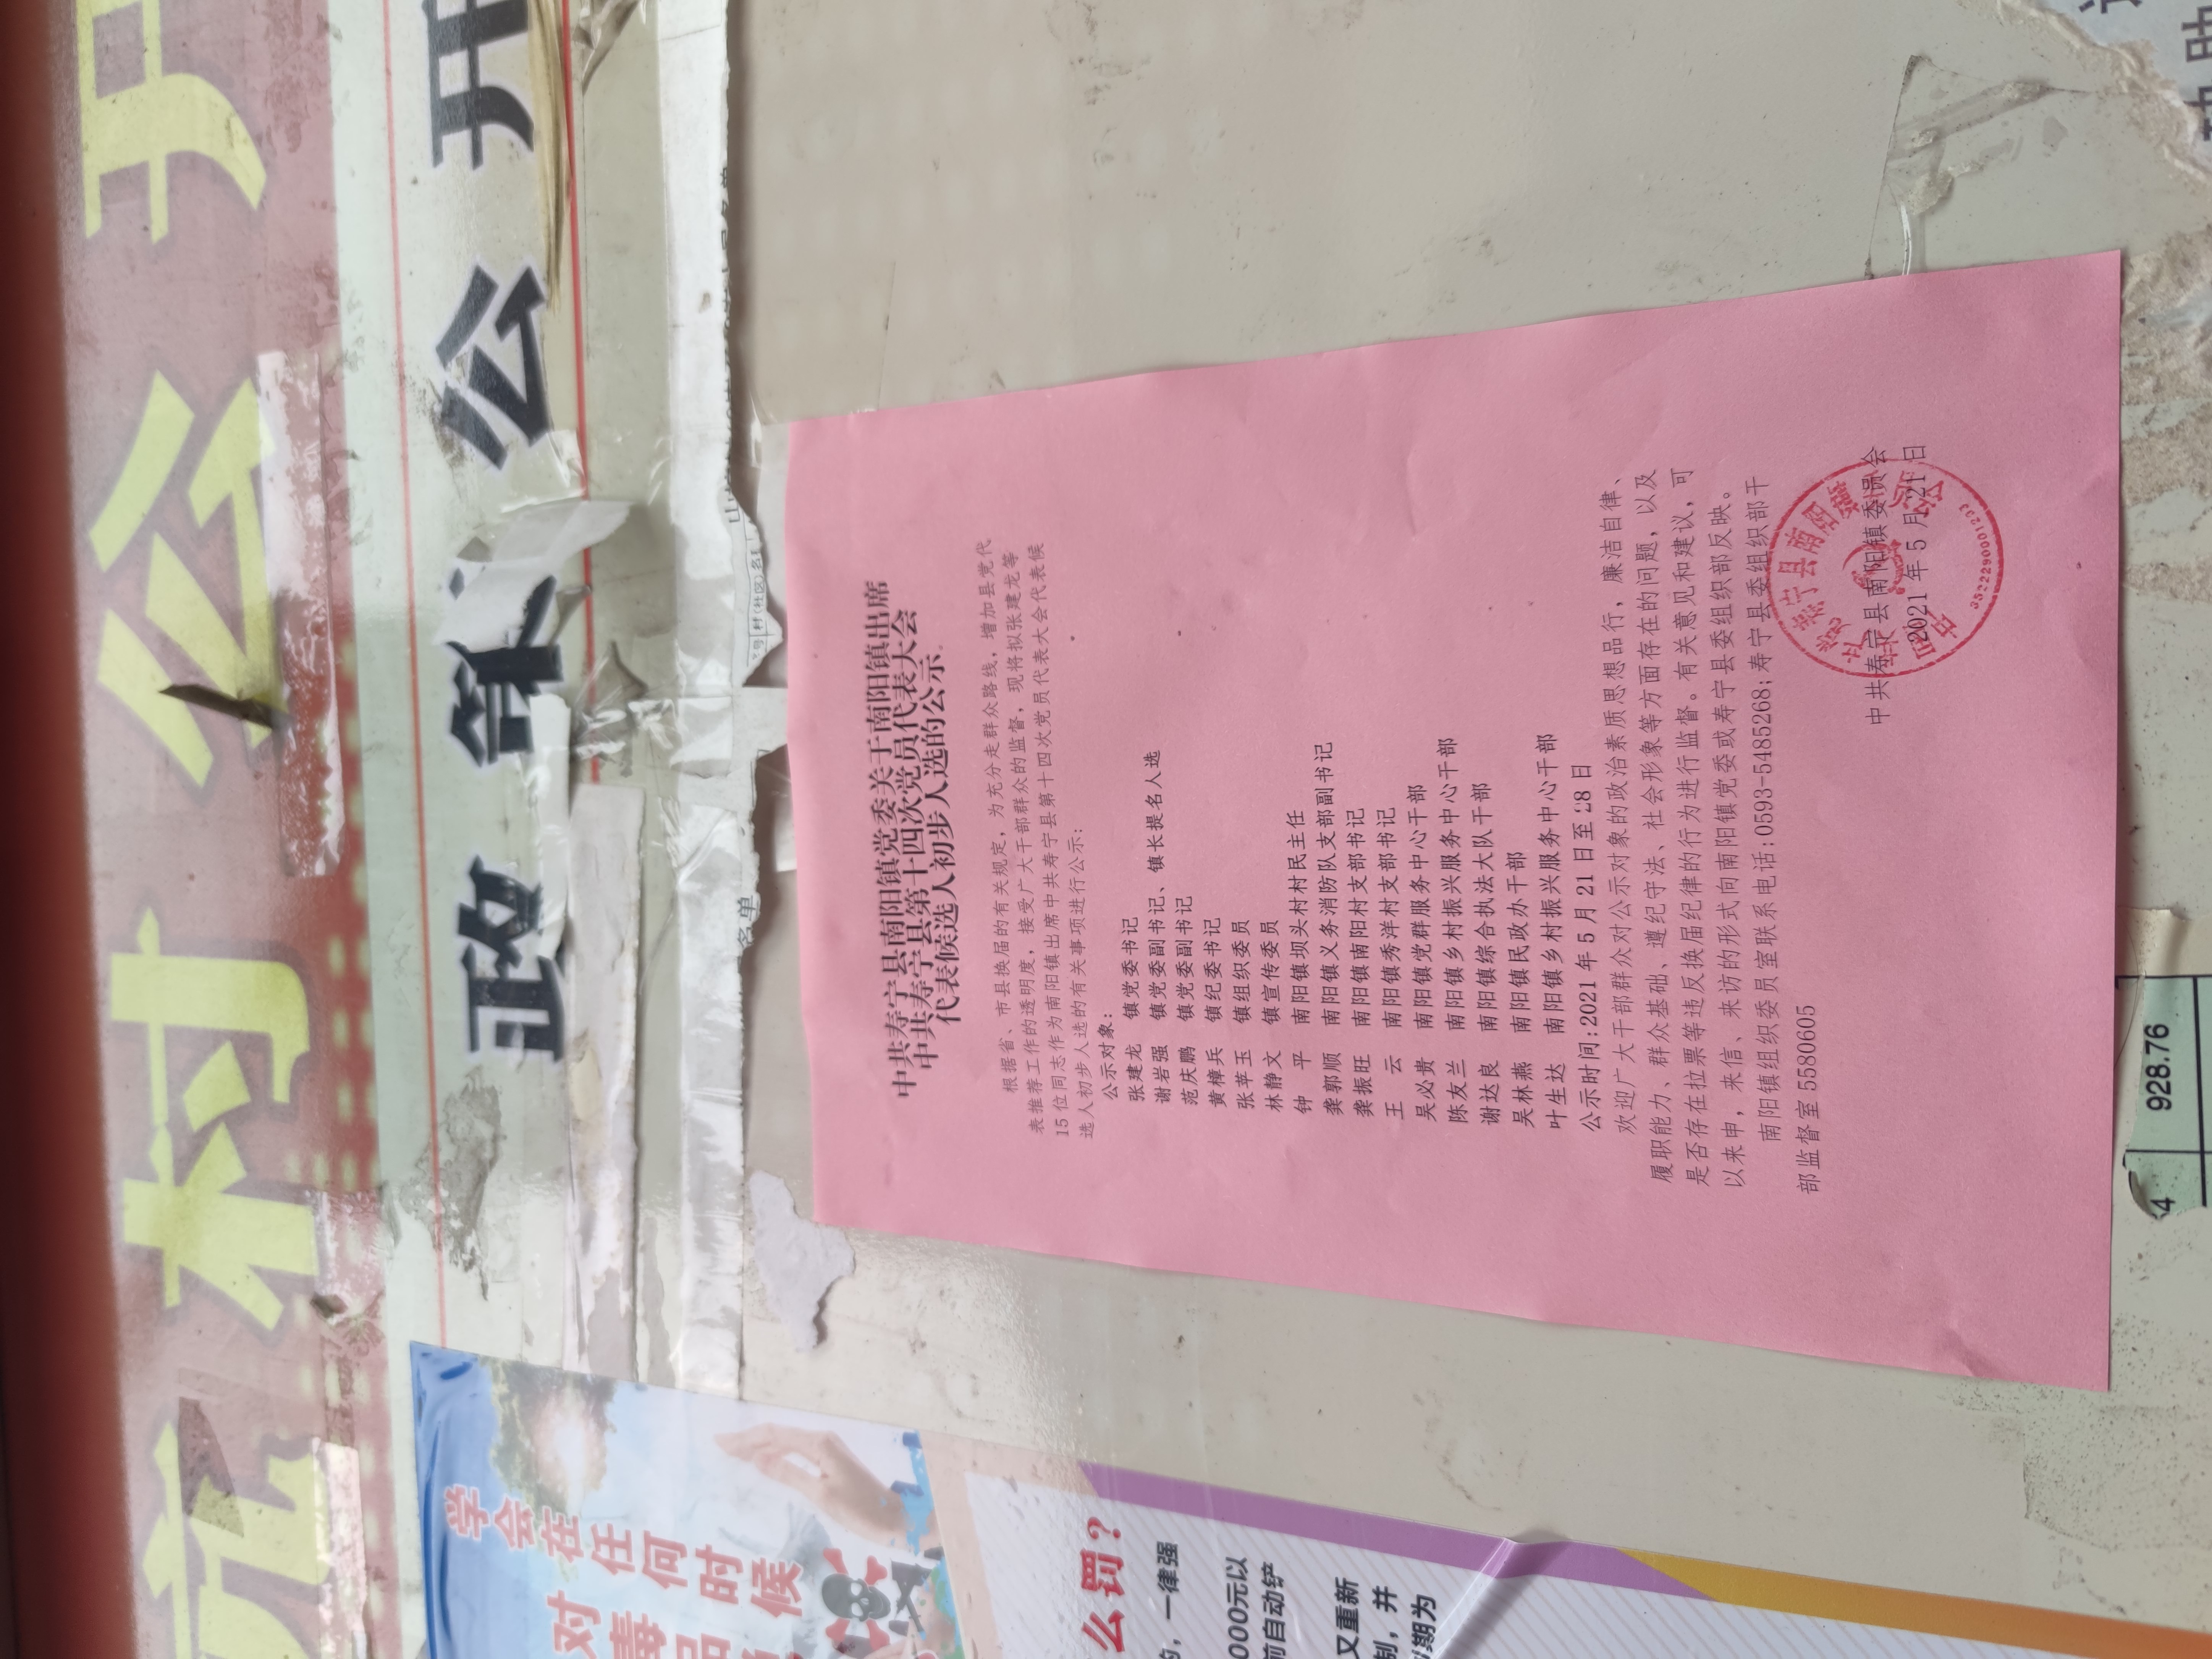 村公开
政务公开
中共寿宁县南阳镇党委关于南阳镇出席
中共寿宁县第十四次党员代表大会
代表候选人初步人选的公示
根据省、市县换届的有关规定，为充分走群众路线，增加县党代
表推荐工作的透明度，接受广大干部群众的监督，现将拟张建龙等
15位同志作为南阳镇出席中共寿宁县第十四次党员代表大会代表候
选人初步人选的有关事项进行公示：
公示对象：
张建龙 镇党委书记
谢岩强 镇党委副书记、镇长提名人选
范庆鹏 镇党委副书记
黄樟兵 镇纪委书记
张苹玉 镇组织委员
林静文 镇宣传委员
钟 平 南阳镇坝头村村民主任
龚郭顺 南阳镇义务消防队支部副书记
龚振旺 南阳镇南阳村支部书记
王 云 南阳镇秀洋村支部书记
吴必贵 南阳镇党群服务中心干部
陈友兰 南阳镇乡村振兴服务中心干部
谢达良 南阳镇综合执法大队干部
吴林燕 南阳镇民政办干部
叶生达 南阳镇乡村振兴服务中心干部
公示时间：2021年5月21日至28日
欢迎广大干部群众对公示对象的政治素质思想品行，廉洁自律、
履职能力、群众基础、遵纪守法、社会形象等方面存在的问题，以及
是否存在拉票等违反换届纪律的行为进行监督。有关意见和建议，可
以来申，来信、来访的形式向南阳镇党委或寿宁县委组织部反映。
南阳镇组织委员室联系电话：0593-5485268；寿宁县委组织部干
部监督室5580605
中共寿宁县南阳镇委员会
2021年5月21日
名单
村（社区）名
学会在任何时候
对毒品
么罚？
，一律强
000元以
前自动铲
又重新
制，并
期为
928.76